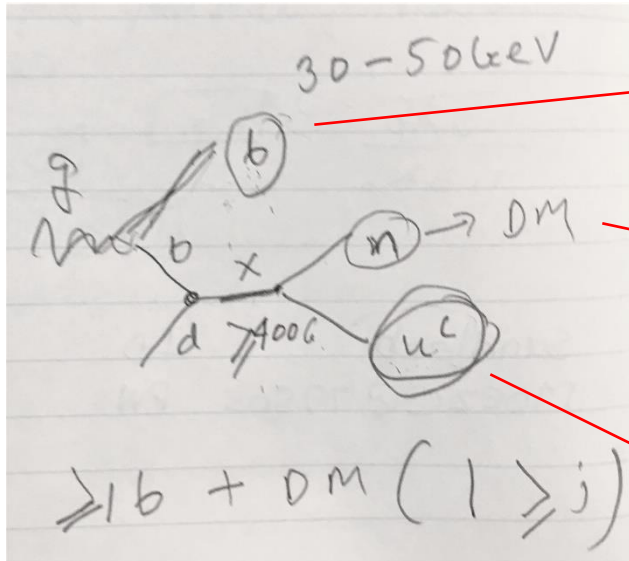 30-50GeV
b
g
b
X
n → DM
d
≥400G
u^c
≥1b + DM (1 ≥ j)